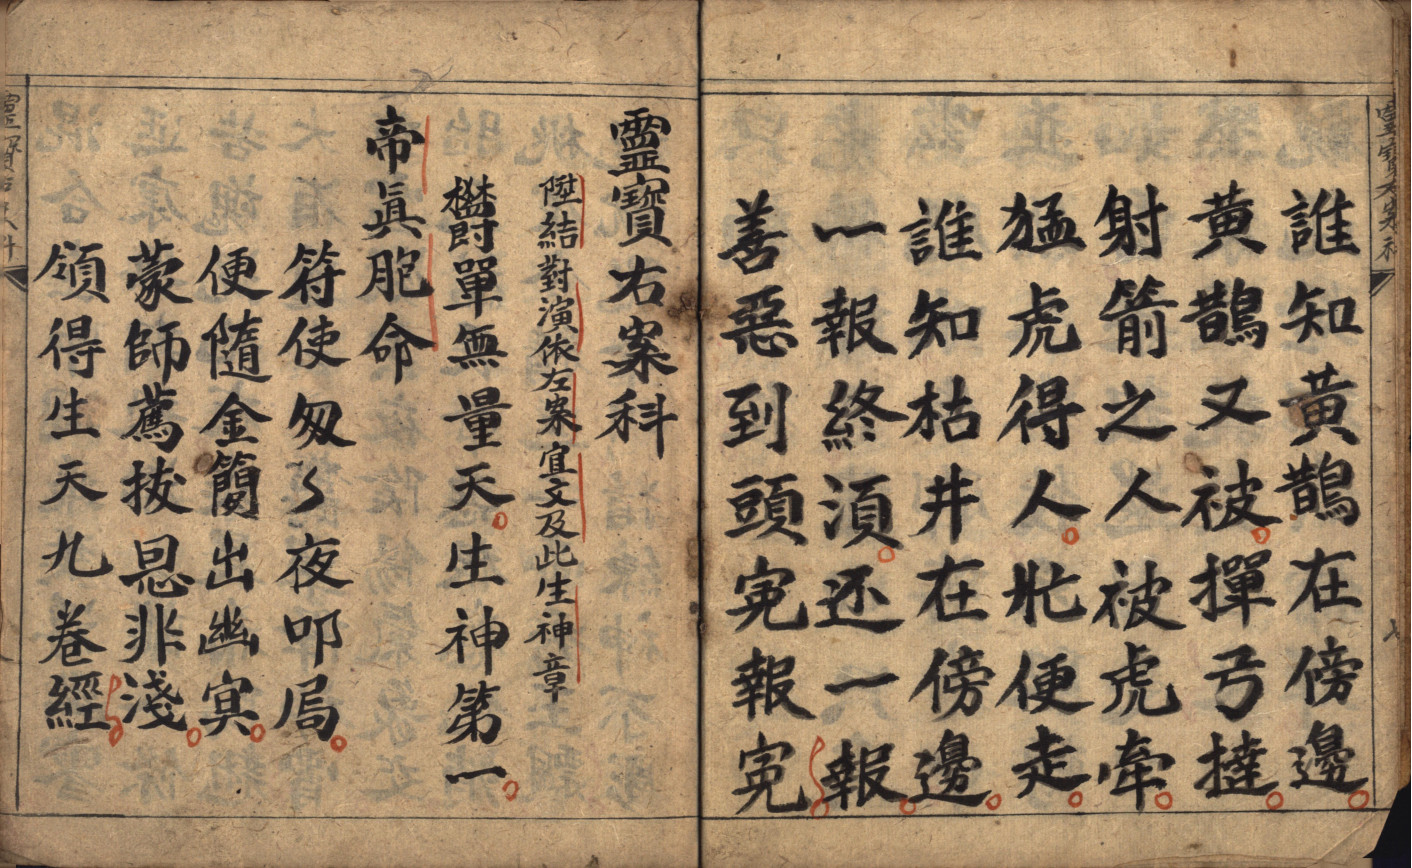 誰知黄鵲在傍邊
黄鵲又被撣弓撻
射箭之人被虎牽
猛虎得人忙便走
誰知枯井在傍邊
一報終須还一報
善惡到頭寃報寃
靈寶右案科
陞結對演依左案宜文及此生神章
欎單無量天生神第一
帝眞胞命
符使匆々夜叩局
便隨金簡出幽冥
蒙師薦拔恩非淺
領得生天九卷經